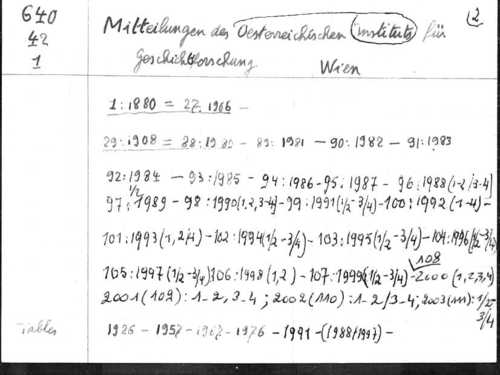 640
42
1
2
Mitteilungen des Oesterreichischen Instituts für
Geschichtsforschung Wien
1:1880 = 27:1906 -
29:1908 = 88:1980 - 89:1981 - 90:1982 - 91:1983
92:1984 - 93:1985 - 94:1986 - 95:1987 - 96:1988 (1-2/3-4)
1/2
97:1989 - 98:1990 (1,2,3-4) - 99:1991 (1/2-3/4) - 100:1992 (1-4) -
101:1993 (1,2/4) - 102:1994 (1/2-3/4) - 103:1995 (1/2-3/4) - 104:1996 (1/2-3/4)
108
105:1997 (1/2-3/4) 106:1998 (1,2) - 107:1999 (1/2-3/4) - 2000 (1,2,3,4)
2001 (109): 1-2, 3-4; 2002 (110): 1-2/3-4; 2003 (111): 1/2-
3/4
Tables 1926 - 1957 - 1967 - 1976 - 1991 - (1988/1997) -